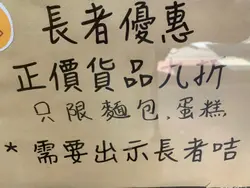 長者優惠
正價貨品九折
只限麵包.蛋糕
* 需要出示長者咭